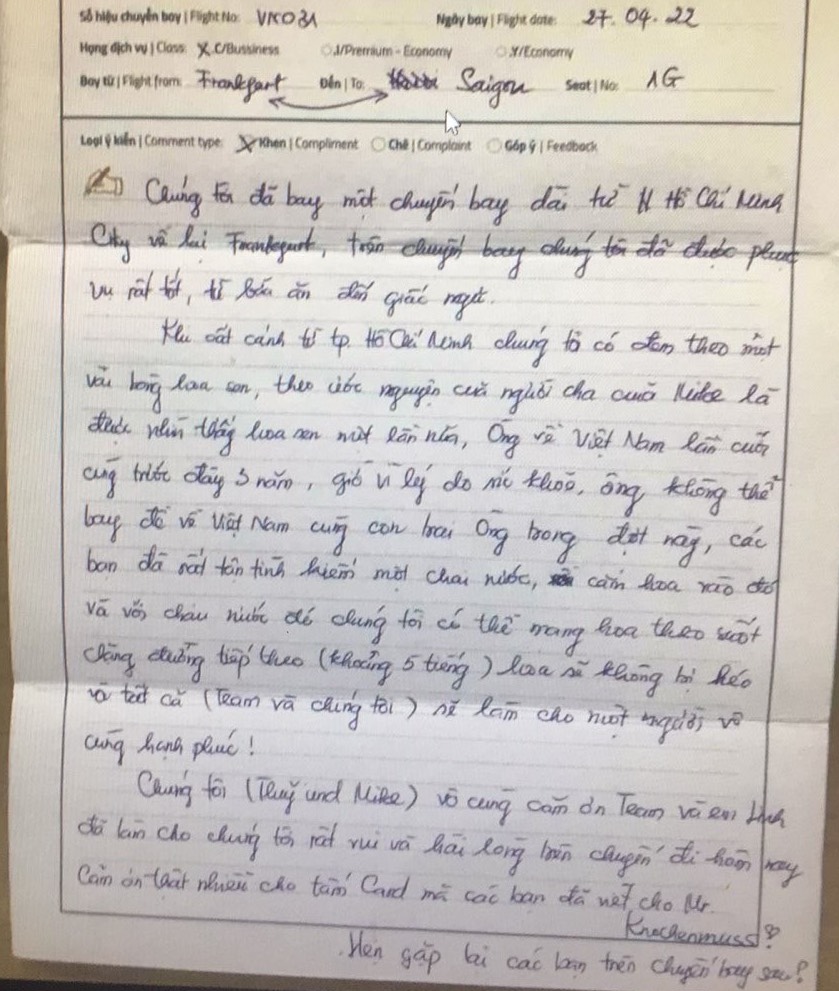 Số hiệu chuyến bay | Flight No: VN0031 Ngày bay | Flight date: 27.04.22
Hạng dịch vụ | Class: X C/Bussiness ○J/Premium - Economy ○Y/Economy
Bay từ | Flight from: Frankfurt Đến | To: Saigon Seat | No: 1G
Loại ý kiến | Comment type: X Khen | Compliment ○ Chê | Complaint ○ Góp ý | Feedback
Chúng tôi đã bay một chuyến bay dài từ Hồ Chí Minh
City về lại Frankfurt, trên chuyến bay chúng tôi đã được phục
vụ rất tốt, từ bữa ăn đến giấc ngủ.
Khi cất cánh từ tp Hồ Chí Minh chúng tô có đem theo một
vài bông hoa sen, theo ước nguyện của người cha của Mike là
được nhìn thấy hoa sen một lần nữa, Ông về Việt Nam lần cuối
cùng trước đây 3 năm, giờ vì lý do sức khoẻ, ông không thể
bay để về Việt Nam cùng con trai Ông trong đợt này, các
bạn đã rất tận tình kiếm một chai nước, cắm hoa vào đó
và với chậu nước để chúng tôi có thể mang hoa theo suốt
chặng đường tiếp theo (khoảng 5 tiếng) hoa sẽ không bị héo
và tất cả (Team và chúng tôi) sẽ làm cho một người vô
cùng hạnh phúc!
Chúng tôi (Thuỷ und Mike) vô cùng cảm ơn Team và em Linh
đã làm cho chúng tôi rất vui và hài lòng trên chuyến đi hôm nay
Cảm ơn thật nhiều cho tấm Card mà các bạn đã viết cho Mr.
Knochenmuss!
Hẹn gặp lại các bạn trên chuyến bay sau!